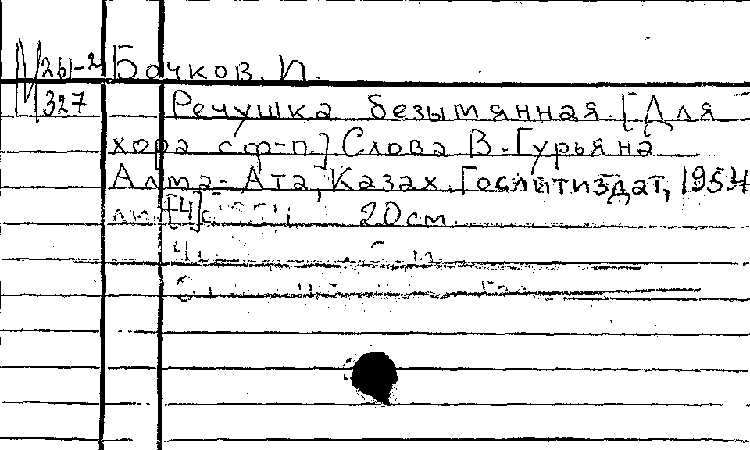 М 261-2 Бочков. И.
327 Речушка безымянная. [Для
хора с ф-п.] Слова В. Гурьяна
Алма-Ата, Казах. Гослитиздат, 1954
[4]с 20 см.